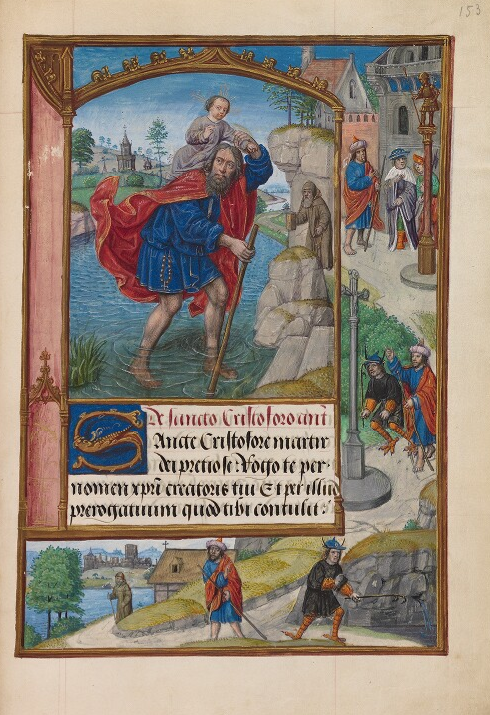 153
De sancto Cristoforo
Sancte Cristofore martir
dei pretiose: Rogo te per
nomen xpri creatoris tui Et per illud
prerogatiuum quod tibi contulit